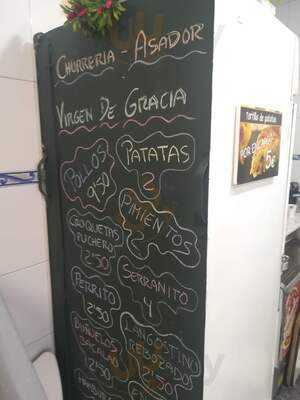 CHURRERIA - ASADOR
VIRGEN DE GRACIA
POLLOS
9'50
PATATAS
2
PIMIENTOS
2
CROQUETAS
PUCHERO
2'50
SERRANITO
4
PERRITO
2'50
LANGOSTINO
REBOZADOS
2'50
BUÑUELOS
BACALAO
Tortilla de patatas
POR ENCARGO
5€